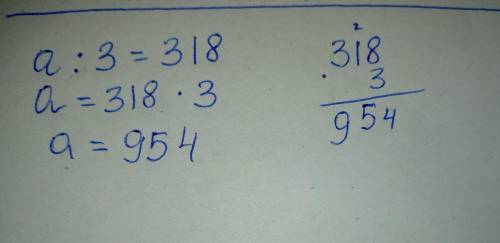 a : 3 = 318
a = 318 · 3
a = 954
2
318
· 3
954